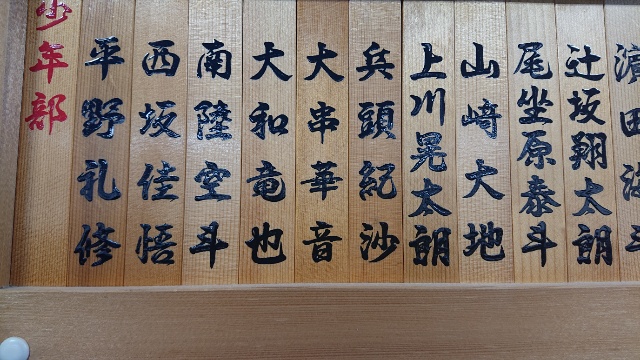 田
辻坂翔太朗
尾坐原泰斗
山崎大地
上川晃太朗
兵頭紀沙
大串華音
大和竜也
南陸空斗
西坂佳悟
平野礼修
少年部